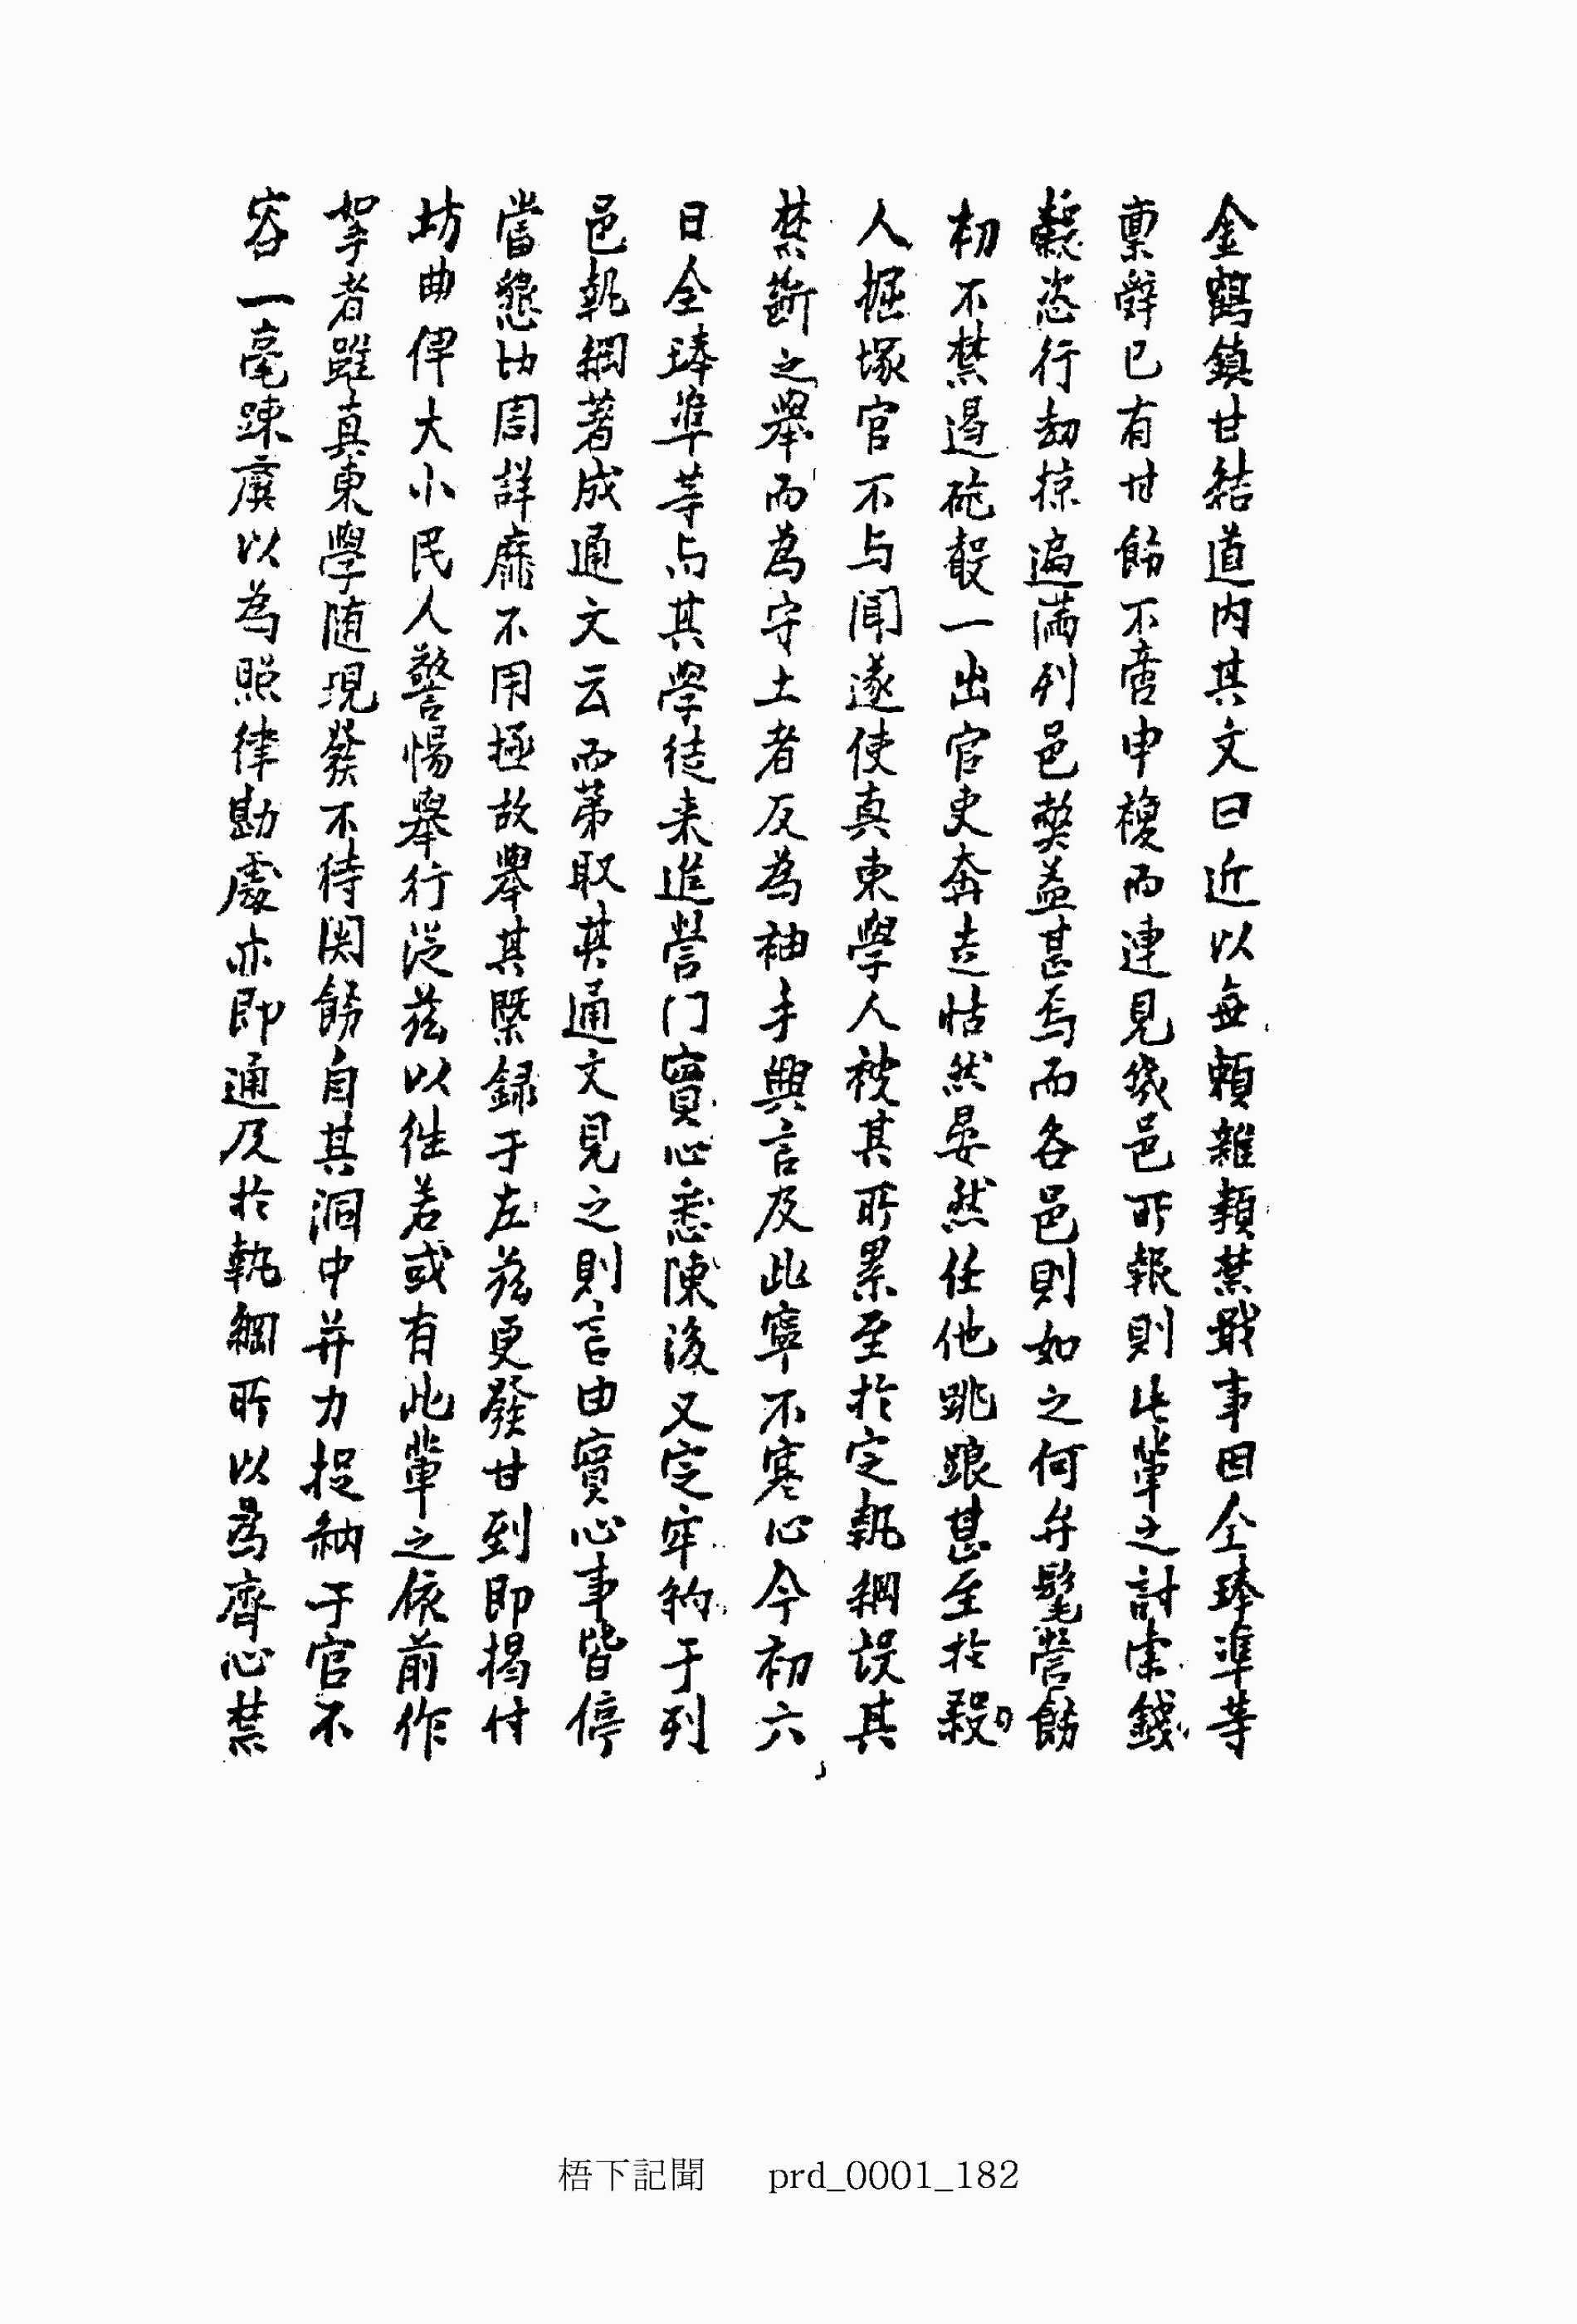 金鶴鎭甘結道內其文曰近以無賴雜類禁戢事因仝琫準等
禀辤已有甘飭不啻申複而連見幾邑所報則此輩之討索錢
穀恣行劫掠遍滿列邑弊益甚焉而各邑則如之何弁髦營飭
初不禁遏砲殽一出官吏奔走恬然晏然任他跳踉甚至於殺
人掘塚官不与聞遂使真東學人被其所累至於定執綱誤其
禁斷之擧而爲守土者反爲袖手興言及此寧不寒心今初六
日仝琫準等与其學徒来進營门實心悉陳後又定牢約于列
邑執綱著成通文云而苐取其通文見之則言由實心事皆停
當懇切周詳靡不用極故擧其槩録于左玆更發甘到即揭付
坊曲俾大小民人警惕擧行是玆以徃若或有此輩之依前作
挐者雖真東學随現發不待関飭自其洞中并力捉納于官不
容一毫踈虞以為照律勘處亦即通及於執綱所以爲齊心禁
梧下記聞 prd_0001_182